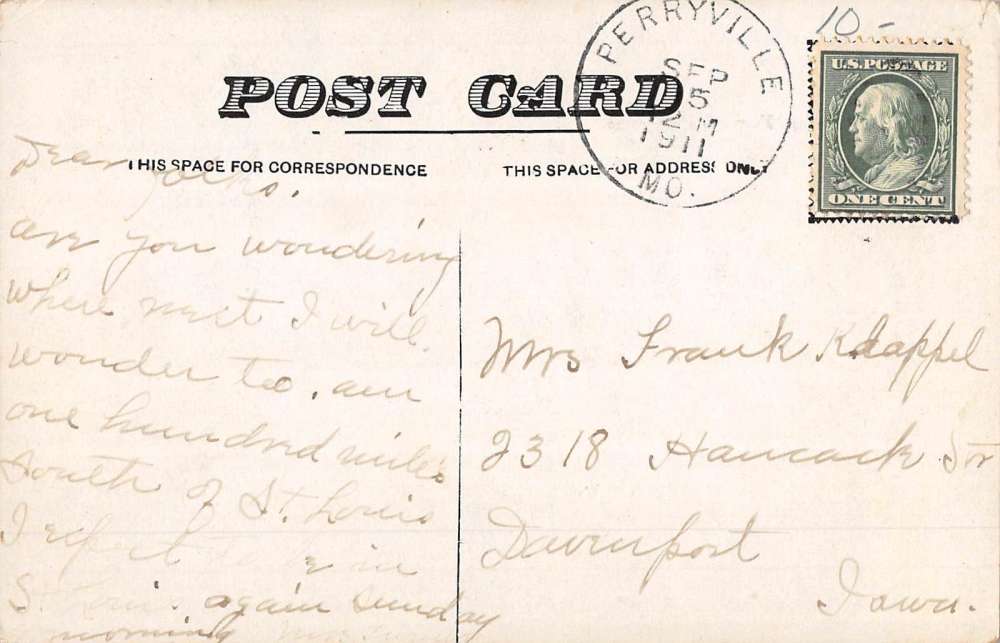 10-
POST CARD
THIS SPACE FOR CORRESPONDENCE
THIS SPACE FOR ADDRESS ONLY
PERRYVILLE
SEP
5
12 M
1911
MO.
U.S. POSTAGE
ONE CENT
Dear folks.
are you wondering
where next I will
wonder to. am
one hundred miles
south of St. Louis
I expect in
St. Louis again Sunday
morning
Mrs Frank Klappel
2318 Hancock Str
Davenport
Iowa.